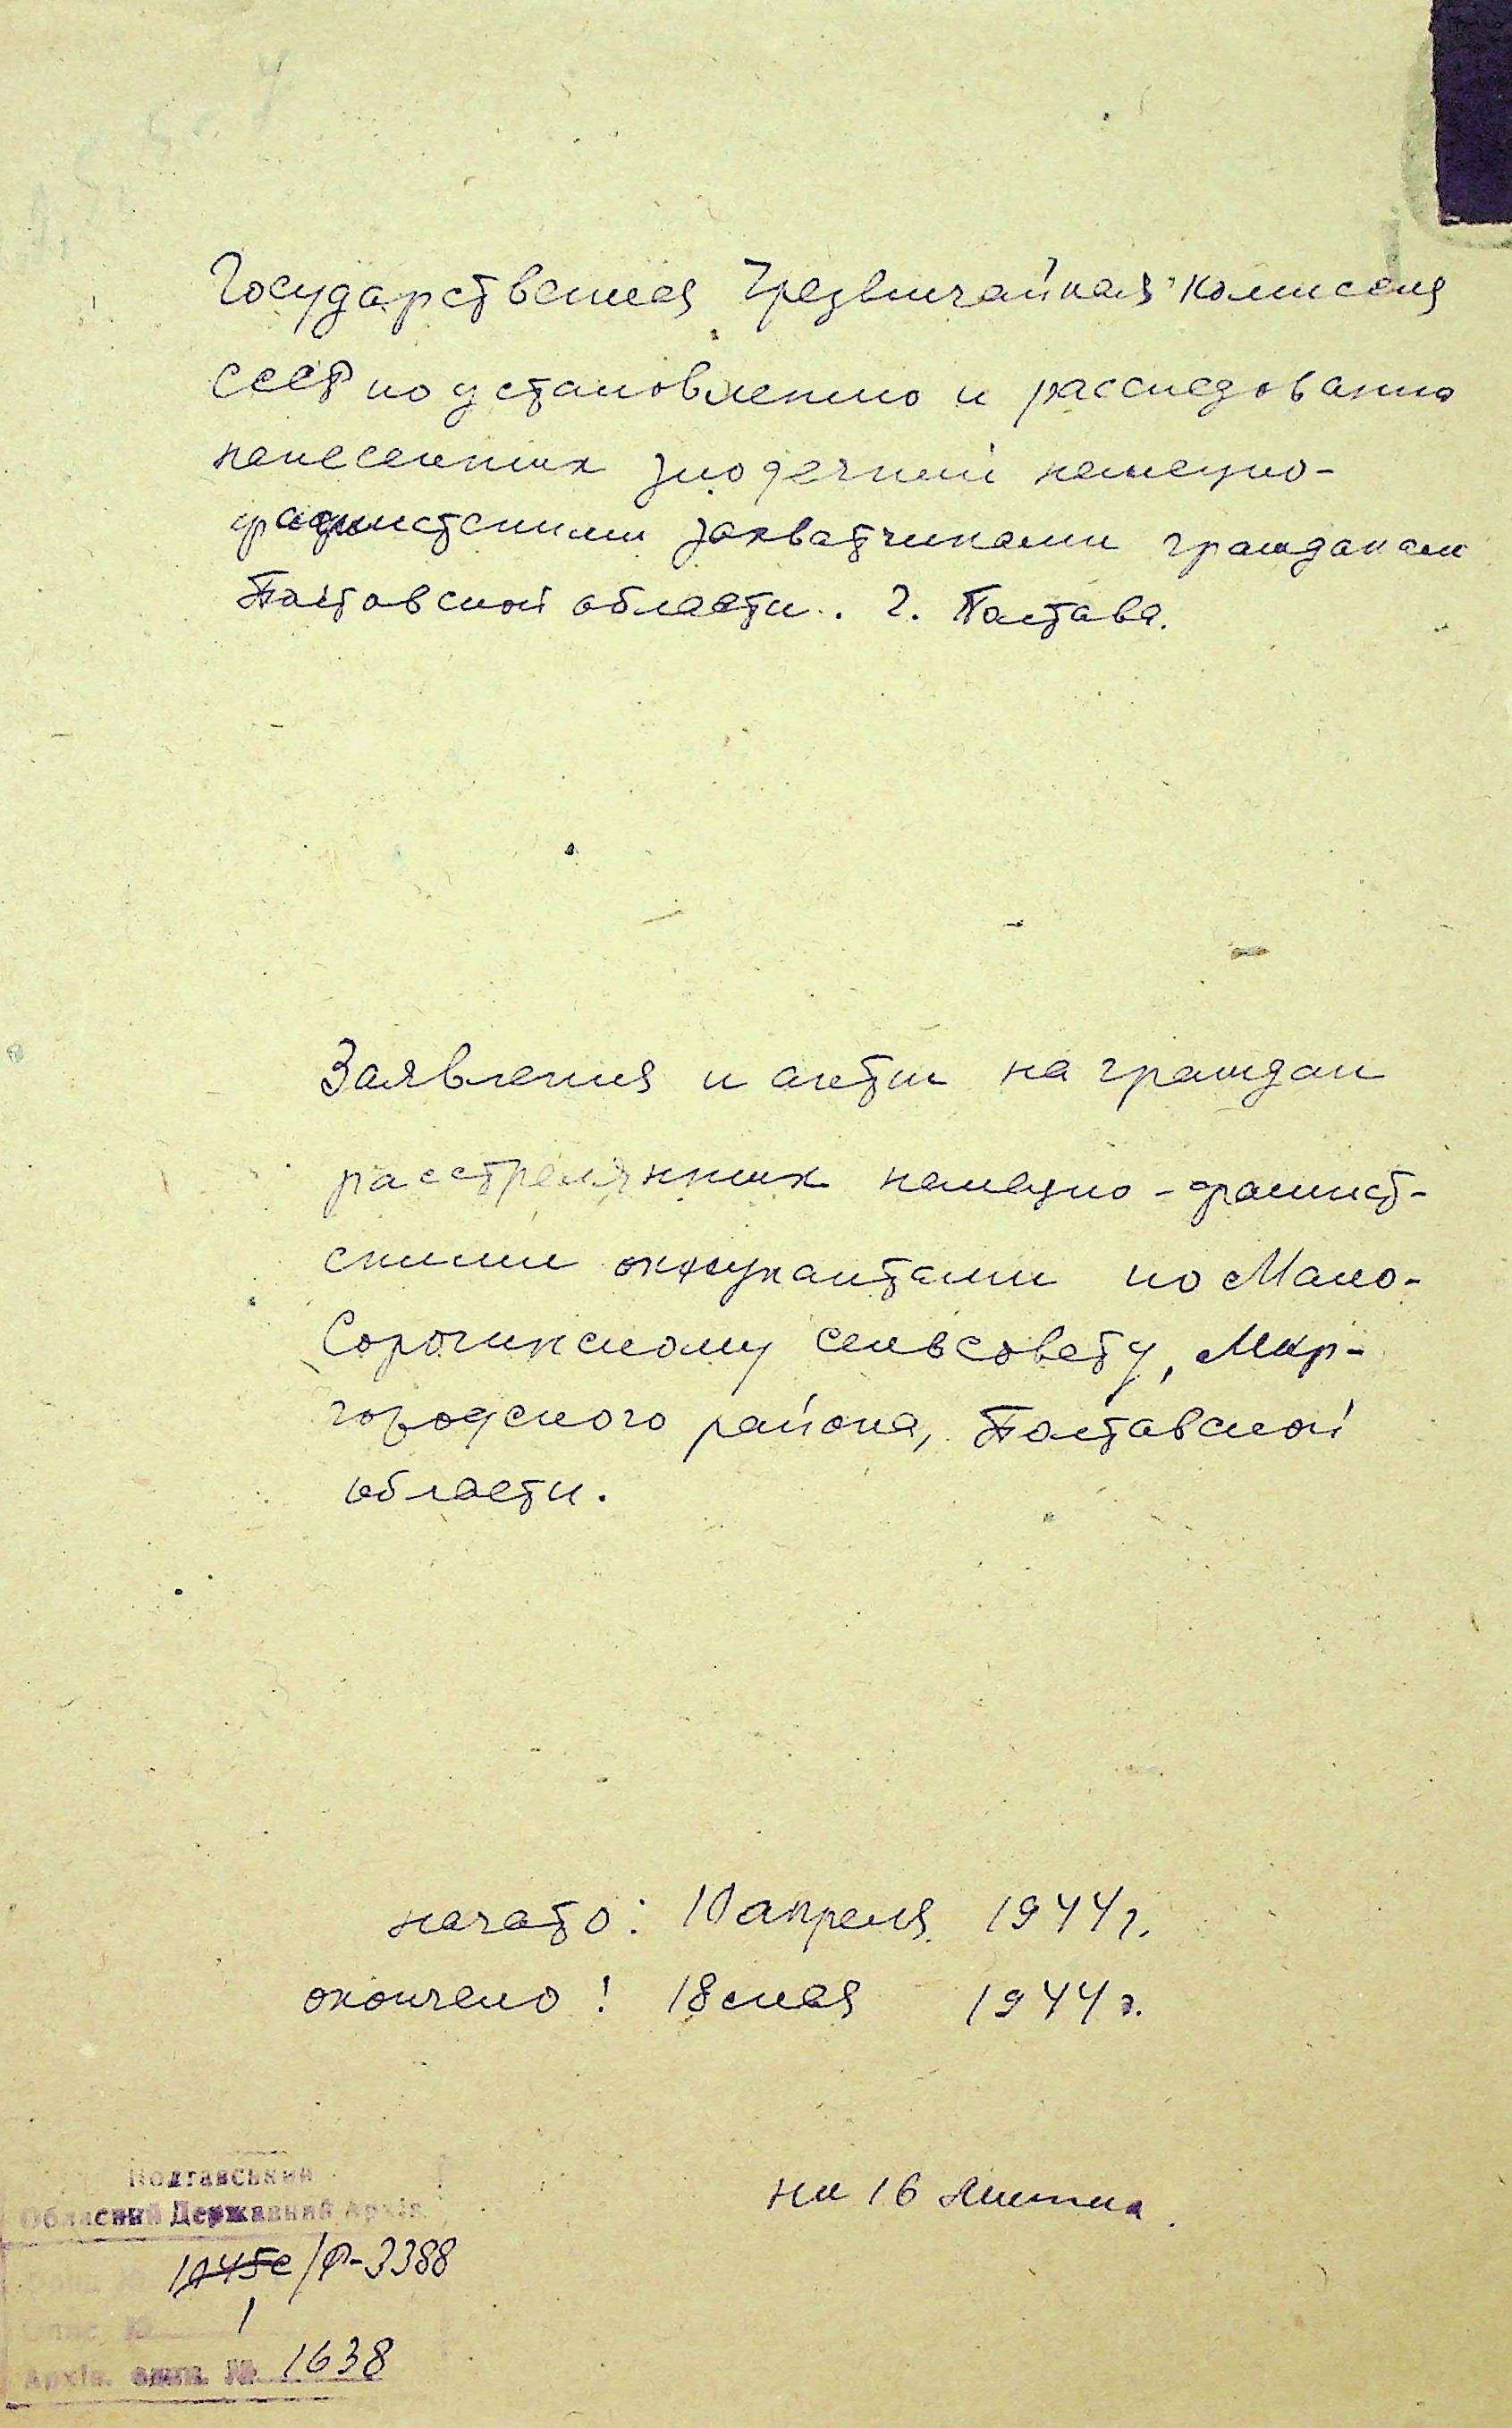 Государственная Чрезвичайная комиссия
СССР по установлению и расследованию
нанесенных злодеяний немецко-
фашистскими захватчиками гражданам
Полтавской области. г. Полтава.
Заявления и акты на граждан
расстрелянных немецко-фашист-
скими оккупантами по Мало-
Сорочинскому сельсовету, Мир-
городского района, Полтавской
области.
начато: 10 апреля 1944 г.
окончено: 18 мая 1944 г.
на 16 листах.
Полтавський
Обласний Державний Архів
Фонд № /Р-3388
Опис № 1
Архів. один. № 1638